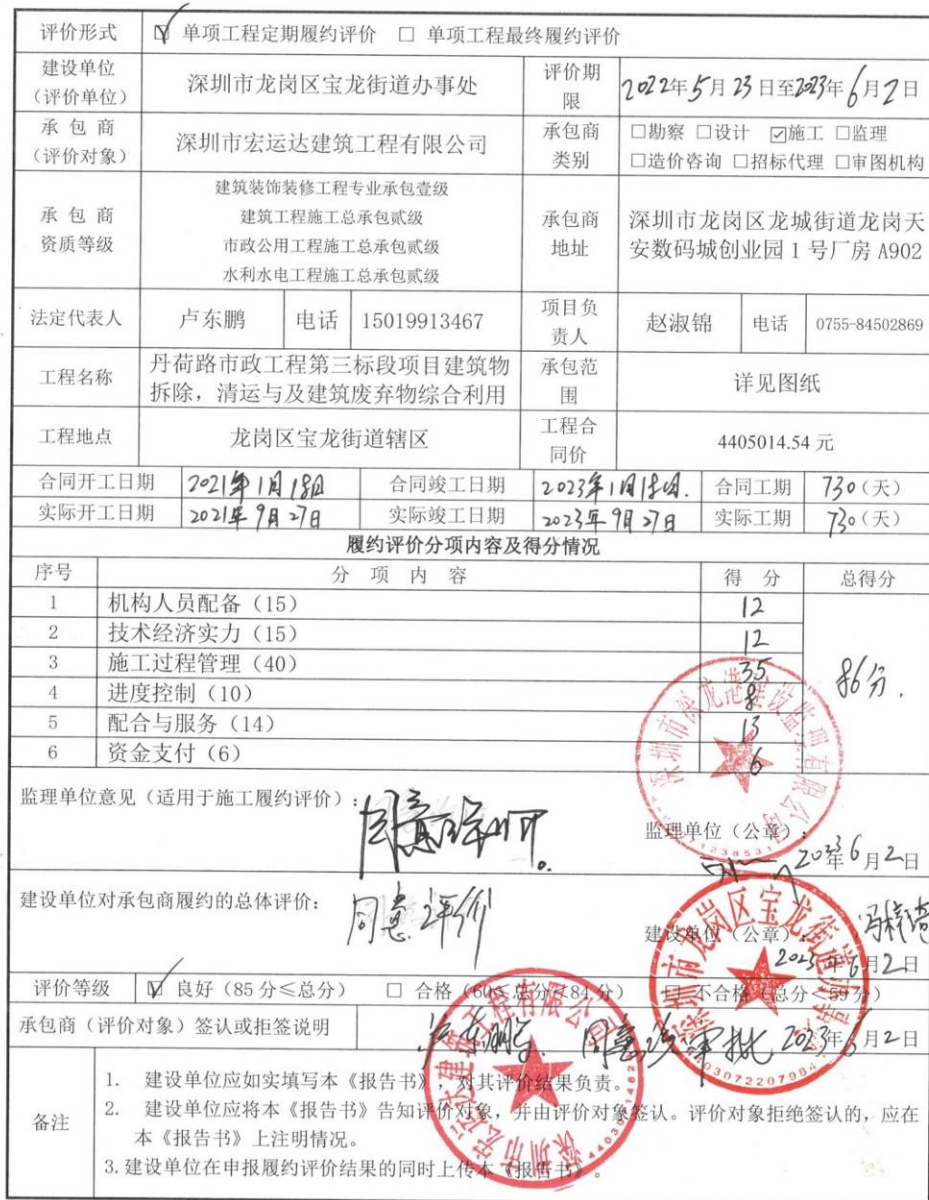 评价形式 ☑ 单项工程定期履约评价 □ 单项工程最终履约评价
建设单位（评价单位） 深圳市龙岗区宝龙街道办事处 评价期限 2022年5月23日至2023年6月2日
承包商（评价对象） 深圳市宏运达建筑工程有限公司 承包商类别 □勘察 □设计 ☑施工 □监理
□造价咨询 □招标代理 □审图机构
承包商资质等级 建筑装饰装修工程专业承包壹级
建筑工程施工总承包贰级
市政公用工程施工总承包贰级
水利水电工程施工总承包贰级
承包商地址 深圳市龙岗区龙城街道龙岗天
安数码城创业园1号厂房A902
法定代表人 卢东鹏 电话 15019913467 项目负责人 赵淑锦 电话 0755-84502869
工程名称 丹荷路市政工程第三标段项目建筑物
拆除，清运与及建筑废弃物综合利用
承包范围 详见图纸
工程地点 龙岗区宝龙街道辖区 工程合同价 4405014.54元
合同开工日期 2021年1月18日 合同竣工日期 2023年1月18日. 合同工期 730（天）
实际开工日期 2021年9月27日 实际竣工日期 2023年9月27日 实际工期 730（天）
履约评价分项内容及得分情况
序号 分项内容 得分 总得分
1 机构人员配备（15） 12
2 技术经济实力（15） 12
3 施工过程管理（40） 35
4 进度控制（10） 8
5 配合与服务（14） 13
6 资金支付（6） 6
86分.
监理单位意见（适用于施工履约评价）：
监理单位（公章）：
2023年6月2日
建设单位对承包商履约的总体评价： 同意评价
建设单位（公章）：
2023年6月2日
评价等级 ☑ 良好（85分≤总分） □ 合格（60≤总分≤84分） □ 不合格（总分≤59分）
承包商（评价对象）签认或拒签说明 2023年6月2日
备注
1. 建设单位应如实填写本《报告书》，对其评价结果负责。
2. 建设单位应将本《报告书》告知评价对象，并由评价对象签认。评价对象拒绝签认的，应在
本《报告书》上注明情况。
3.建设单位在申报履约评价结果的同时上传本《报告书》。